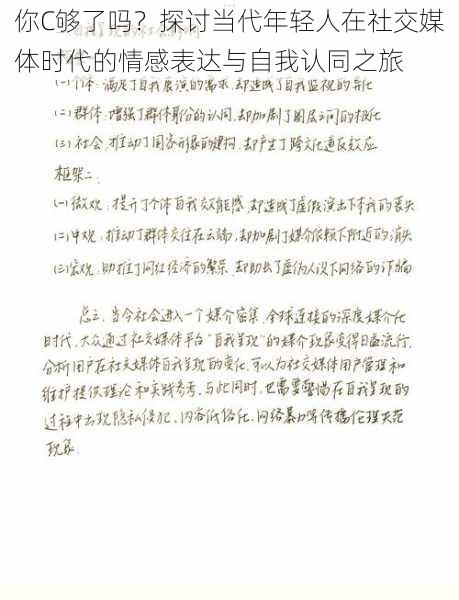 你C够了吗？探讨当代年轻人在社交媒
体时代的情感表达与自我认同之旅
(一)个体：满足了自我展演的需求，却造成了自我监视的异化
(二)群体：增强了群体身份的认同，却加剧了圈层之间的极化
(三)社会：推动了国家形象的建构，却产生了跨文化逆反效应
框架二：
(一)微观：提升了个体自我效能感，却造成了虚假演出下本我的丧失
(二)中观：推动了群体交往在云端，却加剧了媒介依赖下附近的消失
(三)宏观：助推了网红经济的繁荣，却助长了虚伪人设下网络的诈骗
总之，当今社会进入一个媒介密集、全球连接的深度媒介化
时代，大众通过社交媒体平台“自我呈现”的媒介现象变得日益流行，
分析用户在社交媒体自我呈现的变化，可以为社交媒体用户管理和
维护提供理论和实践参考，与此同时，也需要警惕在自我呈现的
过程中出现隐私侵犯、内容低俗化、网络暴力等传播伦理失范
现象。